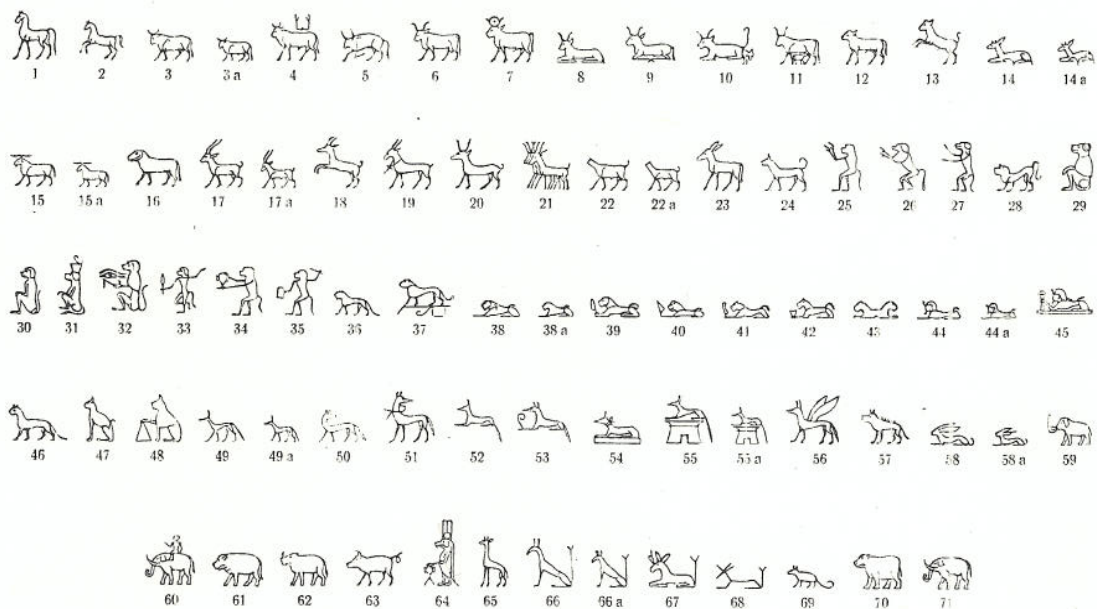 1 2 3 3 a 4 5 6 7 8 9 10 11 12 13 14 14 a
15 15 a 16 17 17 a 18 19 20 21 22 22 a 23 24 25 26 27 28 29
30 31 32 33 34 35 36 37 38 38 a 39 40 41 42 43 44 44 a 45
46 47 48 49 49 a 50 51 52 53 54 55 55 a 56 57 58 58 a 59
60 61 62 63 64 65 66 66 a 67 68 69 70 71